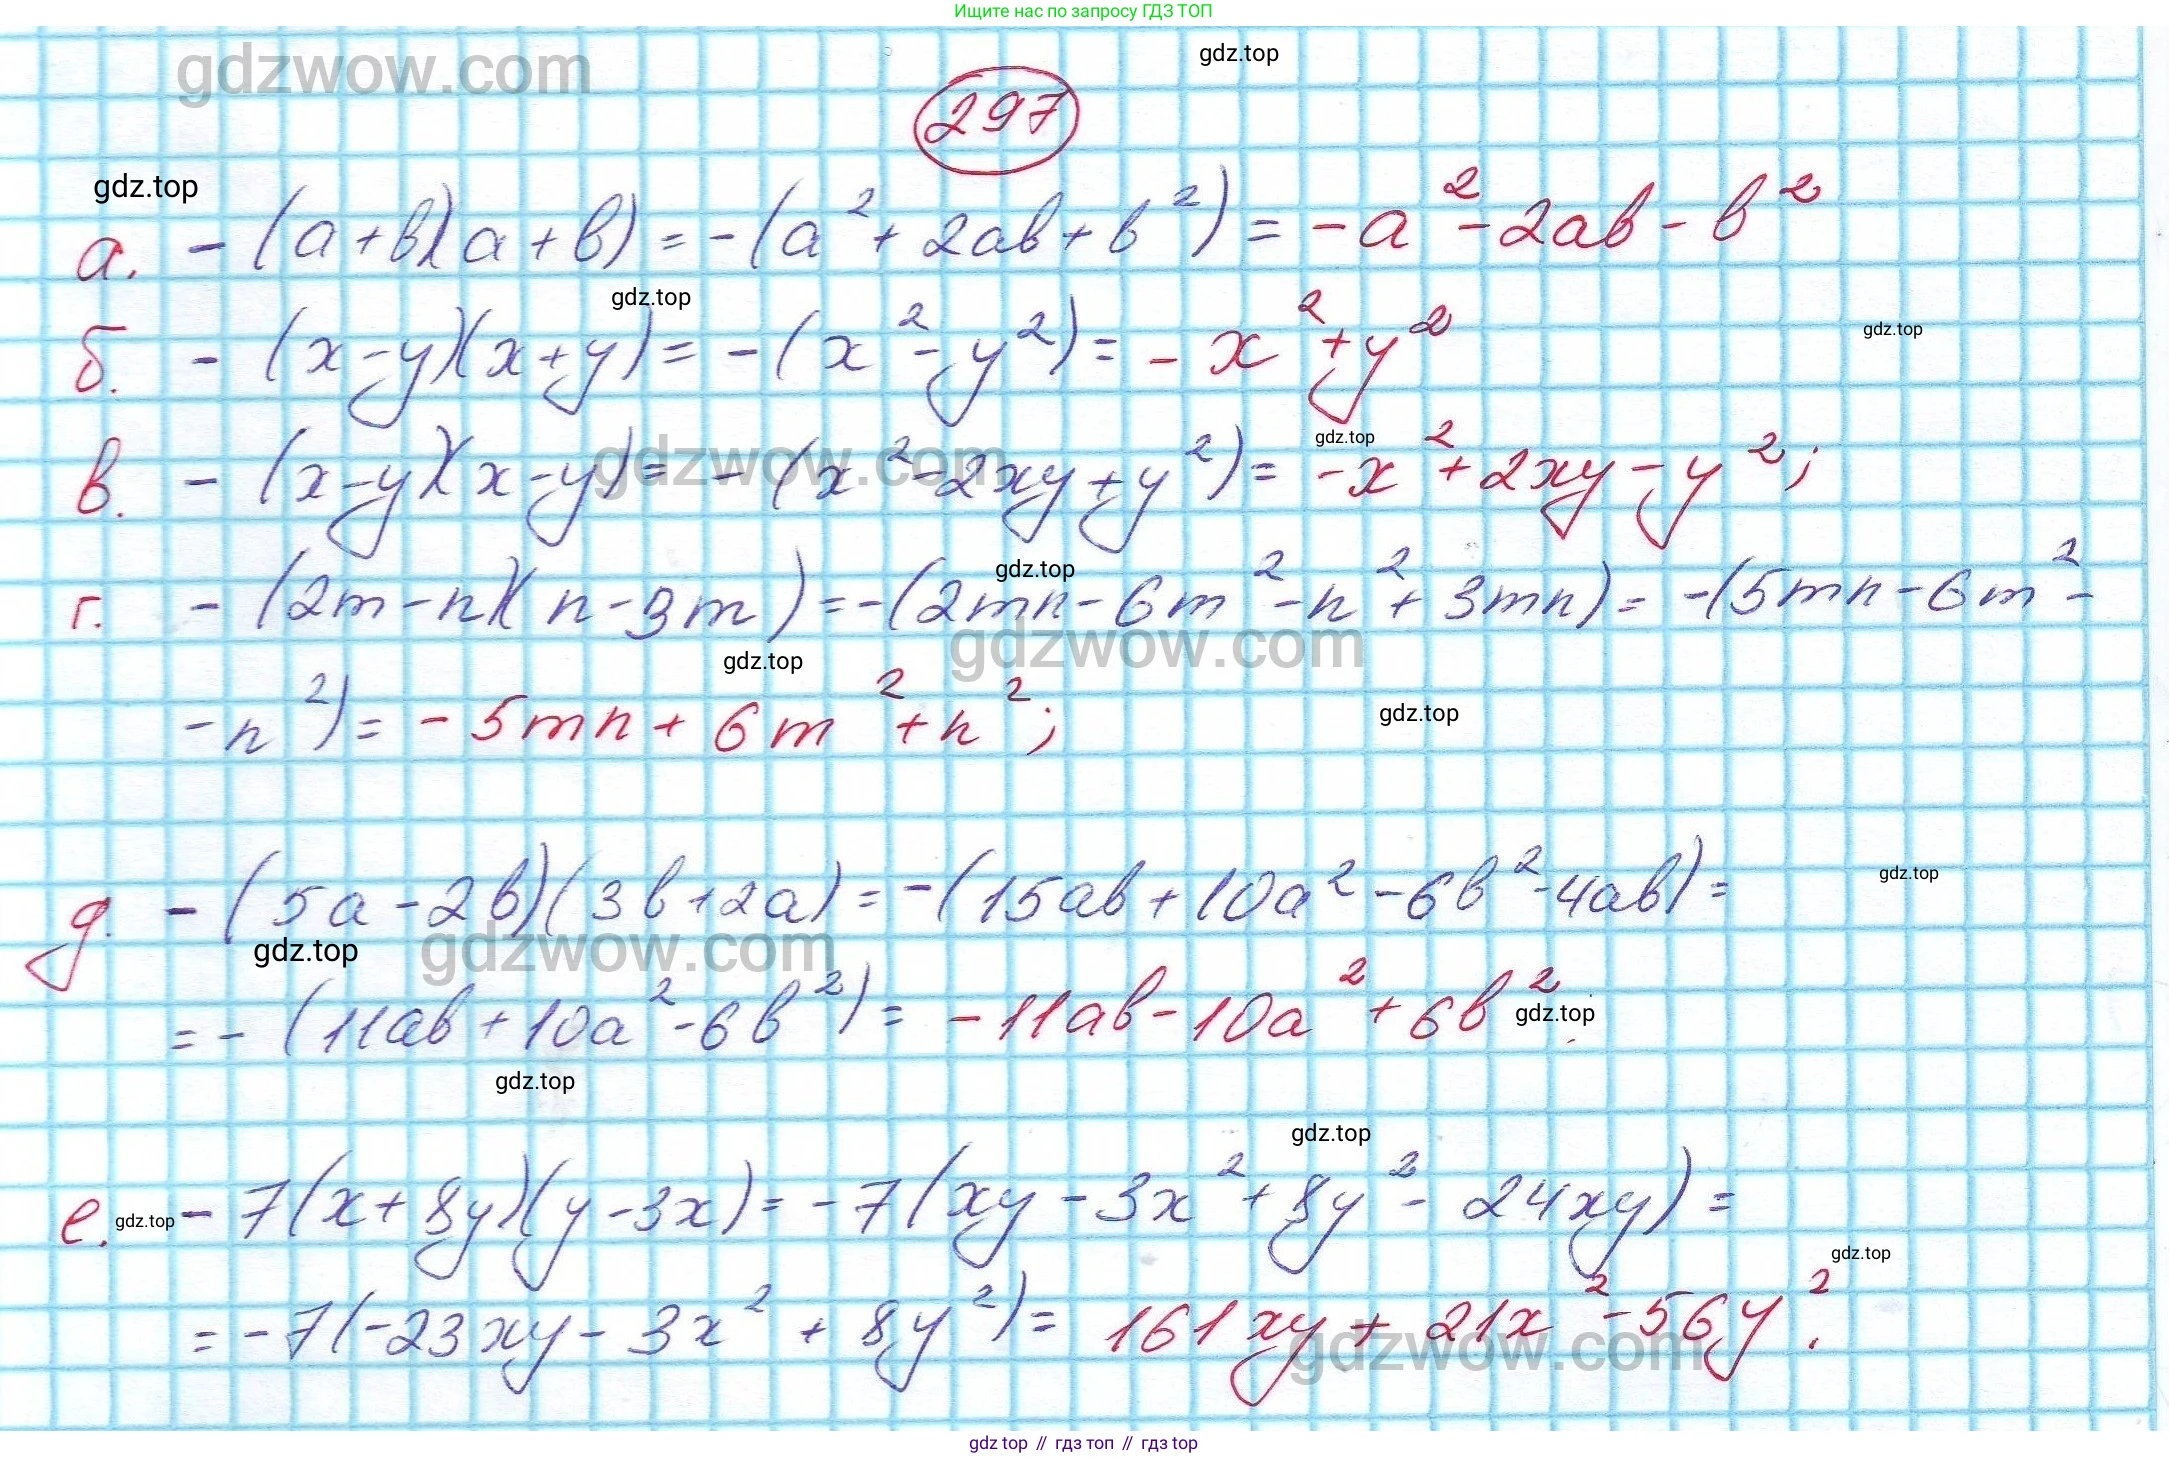 Ищите нас по запросу ГДЗ ТОП
gdzwow.com
gdz.top
297
gdz.top
а. - (a+b)(a+b) = -(a²+2ab+b²) = -a²-2ab-b²
gdz.top
б. - (x-y)(x+y) = -(x²-y²) = -x²+y²
gdz.top
gdz.top
в. - (x-y)(x-y) = -(x²-2xy+y²) = -x²+2xy-y²;
gdzwow.com
gdz.top
г. - (2m-n)(n-3m) = -(2mn-6m²-n²+3mn) = -(5mn-6m²-
gdzwow.com
gdz.top
-n²) = -5mn+6m²+n²;
gdz.top
gdz.top
д. - (5a-2b)(3b+2a) = -(15ab+10a²-6b²-4ab) =
gdz.top
gdzwow.com
= - (11ab+10a²-6b²) = -11ab-10a²+6b².
gdz.top
gdz.top
gdz.top
е. - 7(x+8y)(y-3x) = -7(xy-3x²+8y²-24xy) =
gdz.top
gdz.top
= -7(-23xy-3x²+8y²) = 161xy+21x²-56y².
gdzwow.com
gdz top // гдз топ // гдз top